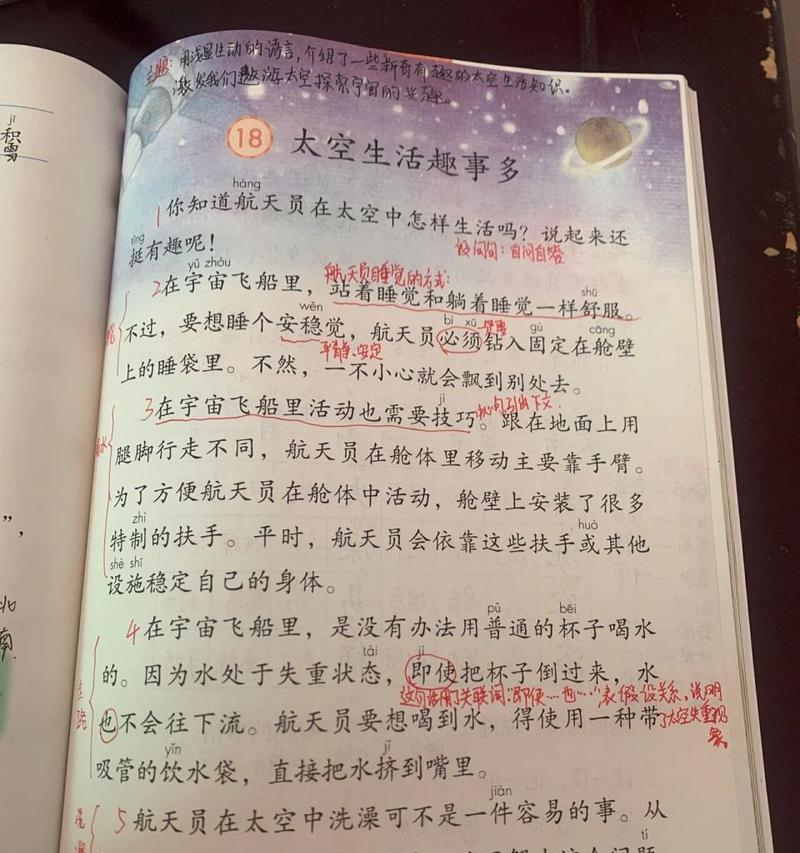 jī
积
雪
主题：用浅显生动的语言，介绍了一些新奇有趣的太空生活知识。
激发我们遨游太空探索宇宙的兴趣。
18 太空生活趣事多
háng
1 你知道航天员在太空中怎样生活吗？说起来还
tǐng
挺有趣呢！
设问句：自问自答
yǔ zhòu
航天员睡觉的方式：
shū
2 在宇宙飞船里，站着睡觉和躺着睡觉一样舒服。
wěn bì xū gù cāng
不过，要想睡个安稳觉，航天员必须钻入固定在舱壁
平静、安定
上的睡袋里。不然，一不小心就会飘到别处去。
jì
3 在宇宙飞船里活动也需要技巧。跟在地面上用
腿脚行走不同，航天员在舱体里移动主要靠手臂。
为了方便航天员在舱体中活动，舱壁上安装了很多
zhì huò
特制的扶手。平时，航天员会依靠这些扶手或其他
shè shī
设施稳定自己的身体。
pǔ bēi
4 在宇宙飞船里，是没有办法用普通的杯子喝水
tài jí
的。因为水处于失重状态，即使把杯子倒过来，水
关联词：“即使…也…”表假设关系，说明
了太空失重现
象
也不会往下流。航天员要想喝到水，得使用一种带
yǐn jǐ
吸管的饮水袋，直接把水挤到嘴里。
jiàn
5 航天员在太空中洗澡可不是一件容易的事。从
tí